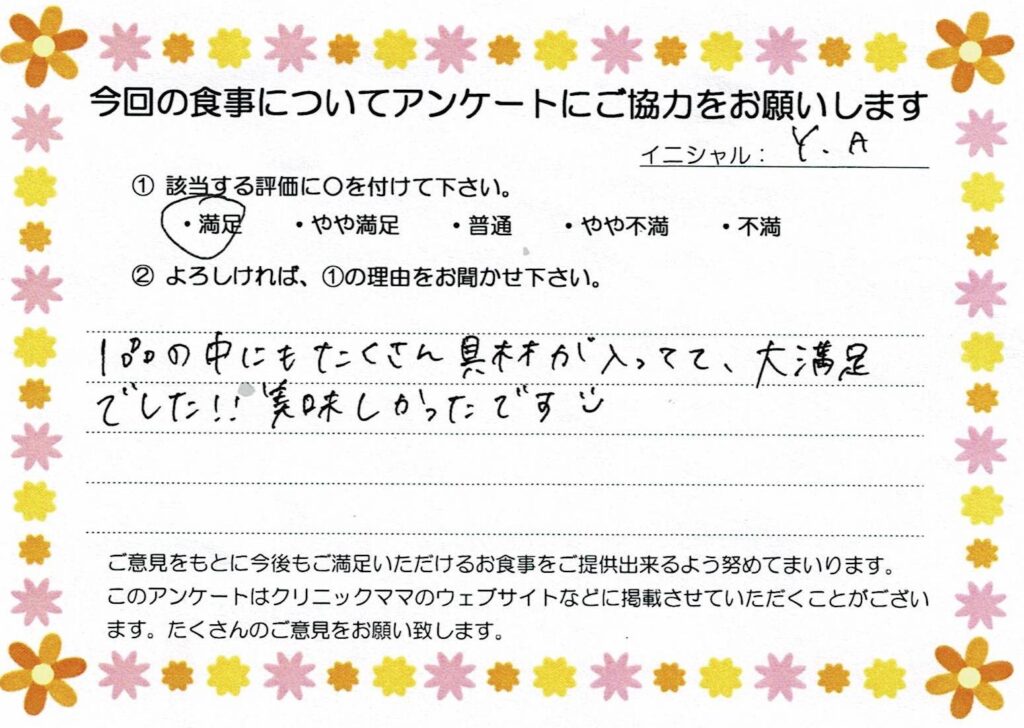 今回の食事についてアンケートにご協力をお願いします
イニシャル： Y.A
① 該当する評価に〇を付けて下さい。
・満足 ・やや満足 ・普通 ・やや不満 ・不満
② よろしければ、①の理由をお聞かせ下さい。
1品の中にもたくさん具材が入ってて、大満足
でした!! 美味しかったです
ご意見をもとに今後もご満足いただけるお食事をご提供出来るよう努めてまいります。
このアンケートはクリニックママのウェブサイトなどに掲載させていただくことがござい
ます。たくさんのご意見をお願い致します。